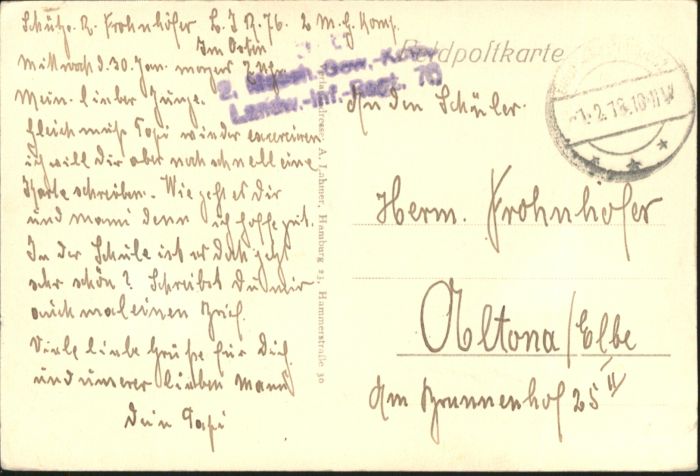 Schütze R. Frohnhöfer L. I. R. 76. 2 M. G. Komp.
Im Osten
Mittwoch d. 30 Jan. morgens 7 Uhr.
Mein lieber Junge.
Gleich muss Papi wieder exerzieren
ich will dir aber noch schnell eine
Karte schreiben. Wie geht es dir
und Mami denn ich hoffe gut.
In der Schule ist es doch jetzt
sehr schön? Schreibst Du mir
auch mal einen Brief.
Viele liebe Grüße für Dich
und unserer lieben Mami
Dein Papi
2. Masch.-Gew.-Komp.
Landw.-Inf.-Regt. 76
Feldpostkarte
-1.2.18.10-11V
An den Schüler.
Herm. Frohnhöfer
Altona/Elbe
Am Brunnenhof 25 II
A. Lahmer, Hamburg 21, Hammerstraße 30